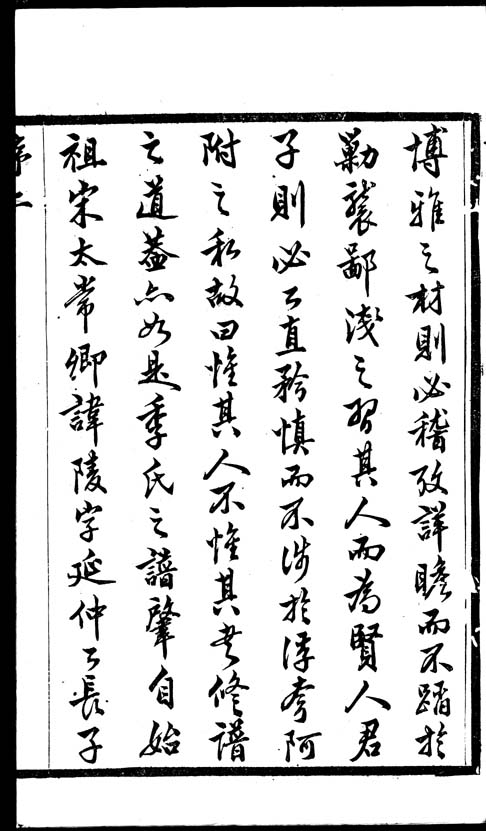 博雅之材則必稽攷詳贍而不蹈於
勦襲鄙淺之習其人而為賢人君
子則必公直矜慎而不涉於浮夸阿
附之私故曰惟其人不惟其書修譜
之道蓋亦如是季氏之譜肇自始
祖宋太常卿諱陵字延仲公長子
序二